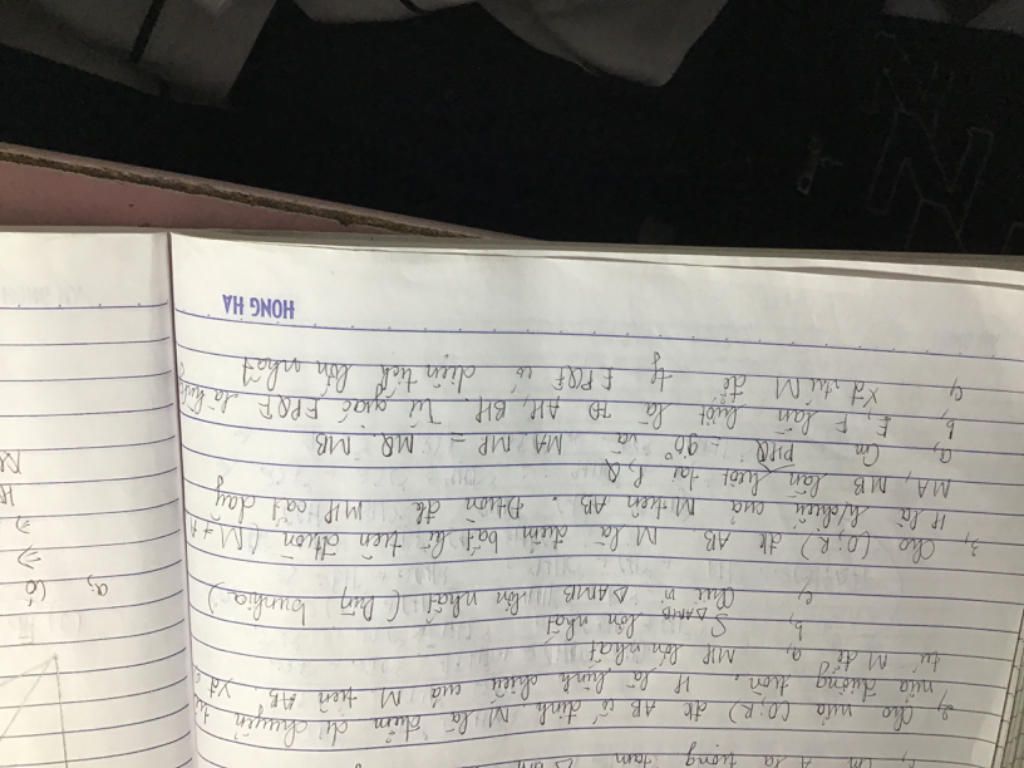 c, Cm A là trọng tâm
2, Cho nửa (O;R) đk AB cố định. M là điểm di chuyển
nửa đường tròn. H là hình chiếu của M trên AB. Xđ
trí M để a, MH lớn nhất
b, S△AMB lớn nhất
c, Chu vi △AMB lớn nhất (bunhia)
3, Cho (O;R) đk AB M là điểm bất kì trên đtròn (M ≠ A
H là h/chiếu của M trên AB. Đtròn đk MH cắt dây
MA, MB lần lượt tại P, Q
a, Cm PHQ = 90° và MA.MP = MQ.MB
b, E, F lần lượt là TĐ AH, BH. Tứ giác EPQF là hình
c, Xđ vtrí M để tg EPQF có diện tích lớn nhất
HONG HA
a,
Có
⇒
⇒